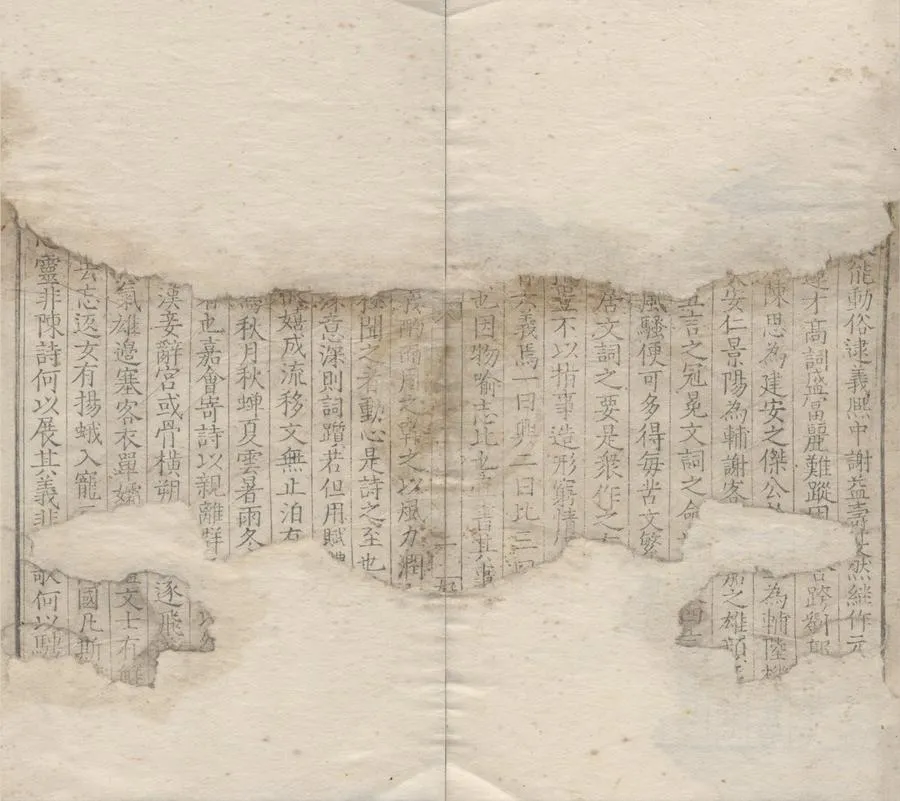 能動俗逮義熈中謝益壽斐然継作元
才高詞盛富麗難蹤因跨劉郭
陳思為建安之傑公為輔陸機
安仁景陽為輔謝客之雄顔
五言之冠冕文詞之命四
風騷便可多得每苦文繁
居文詞之要是衆作之有
豈不以指事造形窮情
六義焉一曰興二曰比三曰
也因物喻志比也書其事
酌而用之幹之以風力潤
極聞之者動心是詩之至也
意深則詞躓若但用賦體
嬉成流移文無止泊有
秋月秋蟬夏雲暑雨冬
者也嘉會寄詩以親離群
漢妾辭宮或骨橫朔逐飛
氣雄邊塞客衣單孀文士有解
去忘返女有揚蛾入寵國凡斯
靈非陳詩何以展其義非歌何以騁